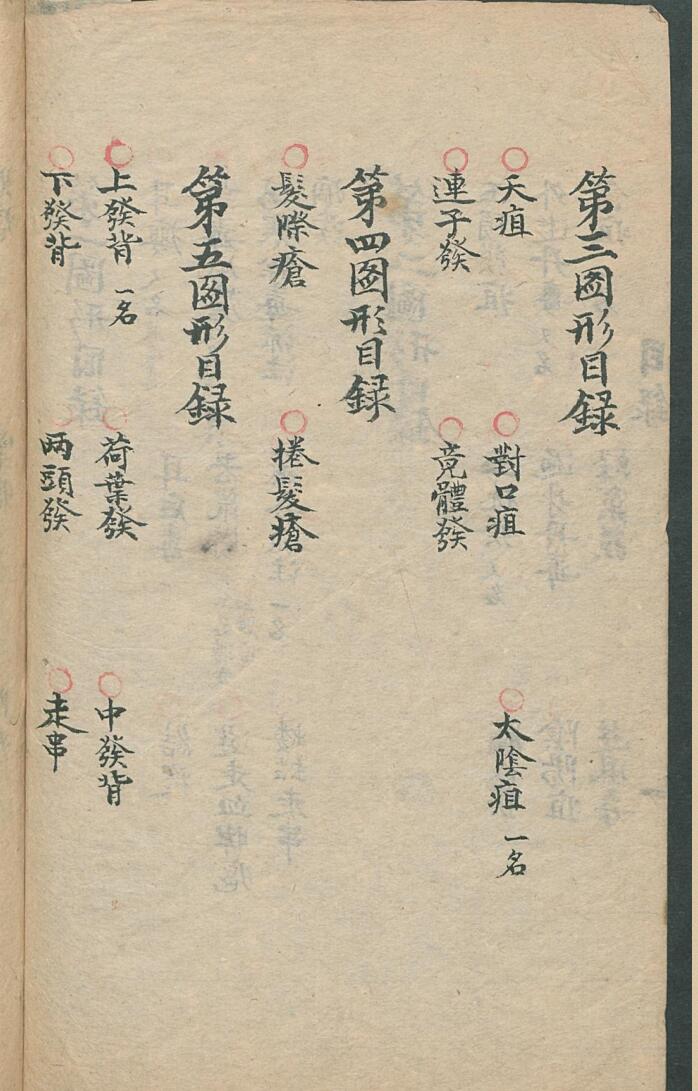 第三圖形目録
○天疽 ○對口疽 ○太陰疽 一名
○連子發 ○竟體發
第四圖形目録
○髮際瘡 ○捲髮瘡
第五圖形目録
○上發背 一名 ○荷葉發 ○中發背
○下發背 ○兩頭發 ○走串